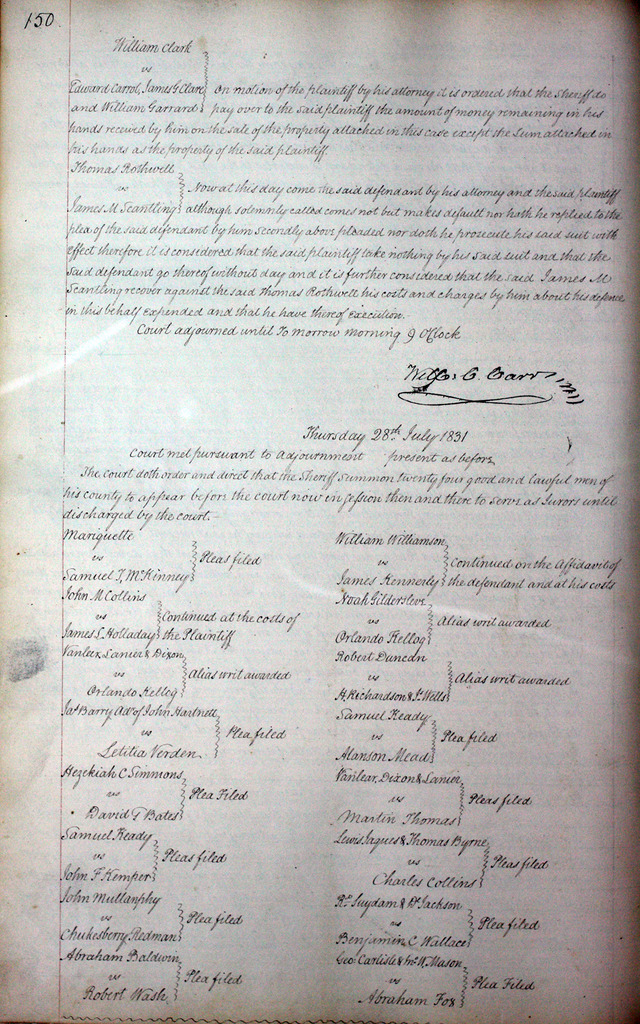 150
William Clark
vs
Edward Carrol, James G Clare
and William Garrard
On motion of the plaintiff by his attorney it is ordered that the Sheriff do
pay over to the said plaintiff the amount of money remaining in his
hands received by him on the sale of the property attached in this case except the sum attached in
his hands as the property of the said plaintiff.
Thomas Rothwell
vs
James M Scantling
Now at this day come the said defendant by his attorney and the said plaintiff
although solemnly called comes not but makes default nor hath he replied to the
plea of the said defendant by him secondly above pleaded nor doth he prosecute his said suit with
effect therefore it is considered that the said plaintiff take nothing by his said suit and that the
said defendant go thereof without day and it is further considered that the said James M
Scantling recover against the said Thomas Rothwell his costs and charges by him about his defence
in this behalf expended and that he have thereof execution.
Court adjourned until To morrow morning 9 OClock
Will: C. Carr
Thursday 28th July 1831
Court met pursuant to adjournment present as before
The court doth order and direct that the Sheriff Summon twenty four good and lawful men of
his county to appear before the court now in session then and there to serve as Jurors until
discharged by the court.-
Mariquette
vs
Samuel T, McKinney
Pleas filed
John M Collins
vs
James L Holladay
Continued at the costs of
the Plaintiff
Vanlear, Lanier & Dixon
vs
Orlando Kellog
Alias writ awarded
Jas Barry Adr of John Hartnett
vs
Letitia Verden
Plea filed
Hezekiah C Simmons
vs
David G Bates
Plea Filed
Samuel Ready
vs
John F Kemper
Pleas filed
John Mullanphy
vs
Chukesberry Redman
Plea filed
Abraham Baldwin
vs
Robert Wash
Plea filed
William Williamson
vs
James Kennerly
Continued on the Affidavit of
the defendant and at his costs
Noah Gildersleve
vs
Orlando Kellog
Alias writ awarded
Robert Duncan
vs
H. Richardson & Wells
Alias writ awarded
Samuel Ready
vs
Alanson Mead
Plea filed
Vanlear, Dixon & Lanier
vs
Martin Thomas
Pleas filed
Lewis Jaques & Thomas Byrne
vs
Charles Collins
Pleas filed
Rd Suydam & Jackson
vs
Benjamin C Wallace
Plea filed
Geo: Carlisle & Mason
vs
Abraham Fox
Plea Filed